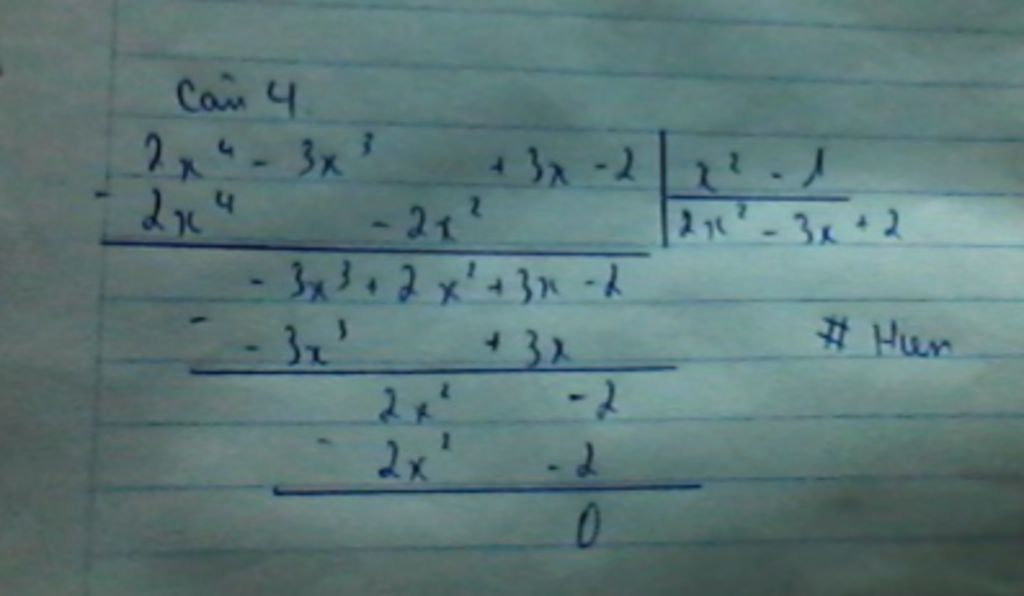 Câu 4
2x⁴ - 3x³ + 3x - 2 | x² - 1
- 2x⁴ - 2x² | 2x² - 3x + 2
- 3x³ + 2x² + 3x - 2
- - 3x³ + 3x # Hien
2x² - 2
- 2x² - 2
0